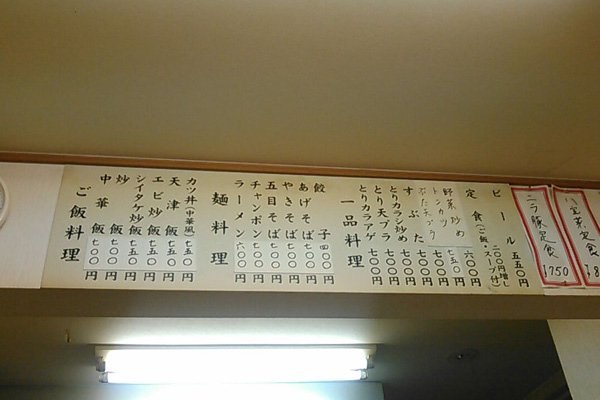 八宝菜定食
ニラ豚定食 ¥750
ビール 五五〇円
定食(ご飯・スープ付) 二〇〇円増し
野菜炒め 六〇〇円
トンカツ 七五〇円
ぶた天プラ 七〇〇円
すぶた 七〇〇円
とりカラシ炒め 七〇〇円
とり天プラ 七〇〇円
とりカラアゲ 七〇〇円
一品料理
餃子 四〇〇円
あげそば 七〇〇円
やきそば 七〇〇円
五目そば 七〇〇円
チャンポン 七〇〇円
ラーメン 六〇〇円
麺料理
カツ丼(中華風) 七五〇円
天津飯 七五〇円
エビ炒飯 七五〇円
シイタケ炒飯 七五〇円
炒飯 七〇〇円
中華飯 七〇〇円
ご飯料理